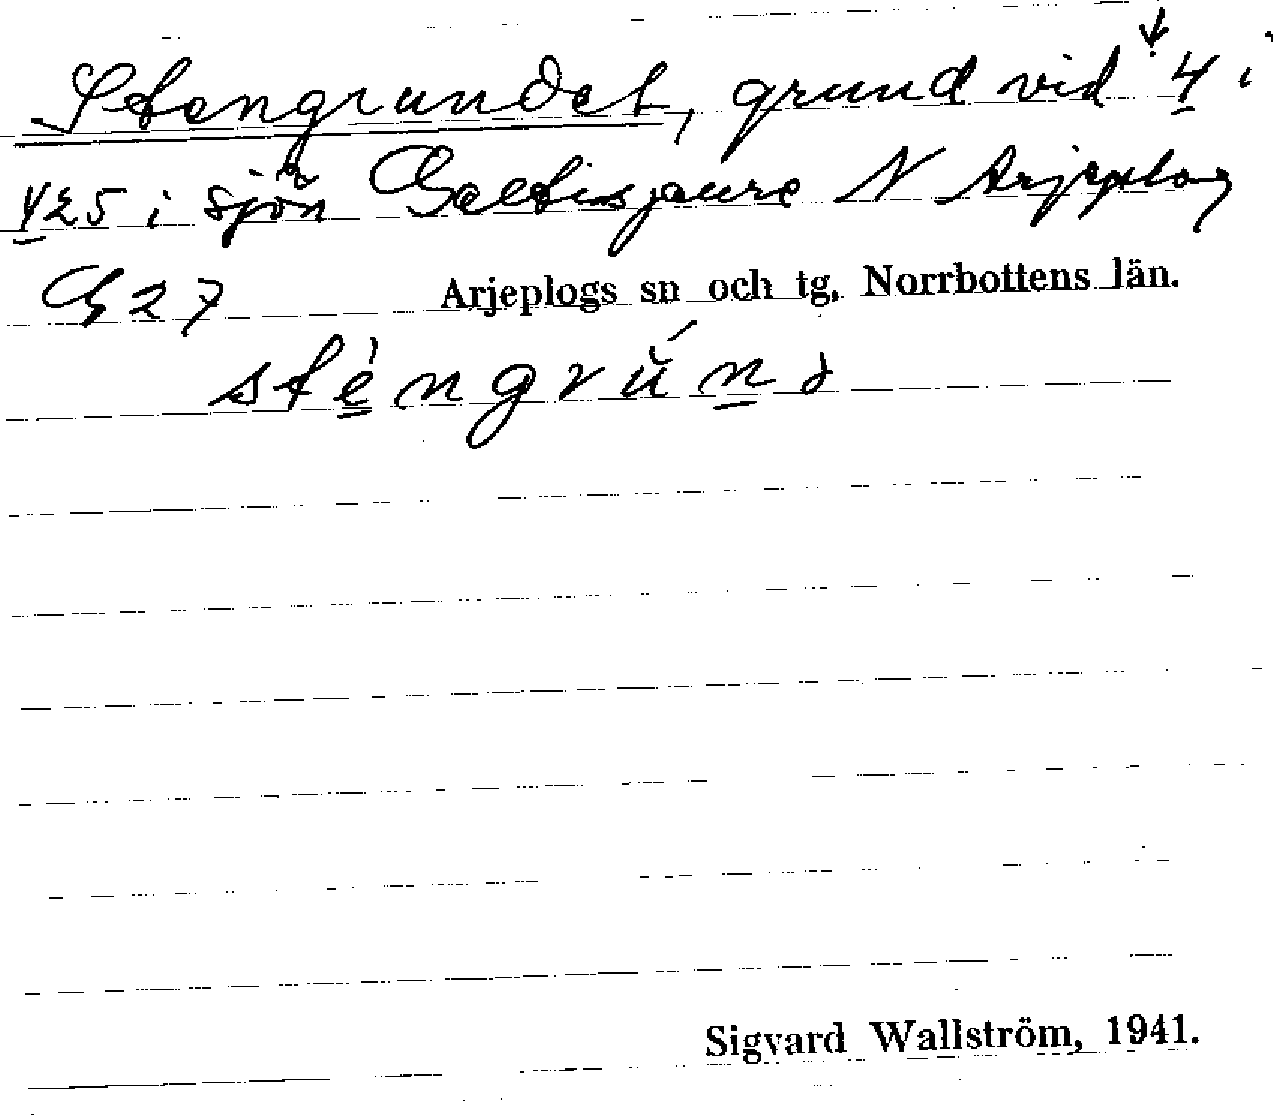 Stengrundet, grund vid ↓ 4 i
425 i sjön Galtisjaure N Arjeplog
G 27 Arjeplogs sn och tg. Norrbottens län.
stèngrŭ́nd
Sigvard Wallström, 1941.